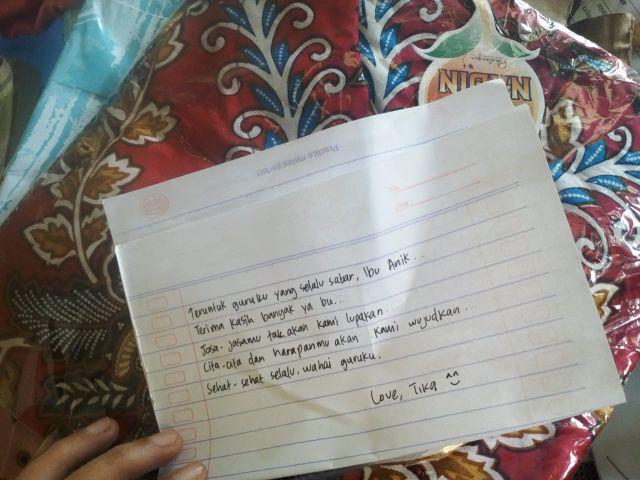 NADIN
Practice makes perfect
No.
Date.
Teruntuk guruku yang selalu sabar, Ibu Anik...
Terima kasih banyak ya bu...
Jasa-jasamu tak akan kami lupakan...
Cita-cita dan harapanmu akan kami wujudkan...
Sehat-sehat selalu wahai guruku.
Love, Tika ^^